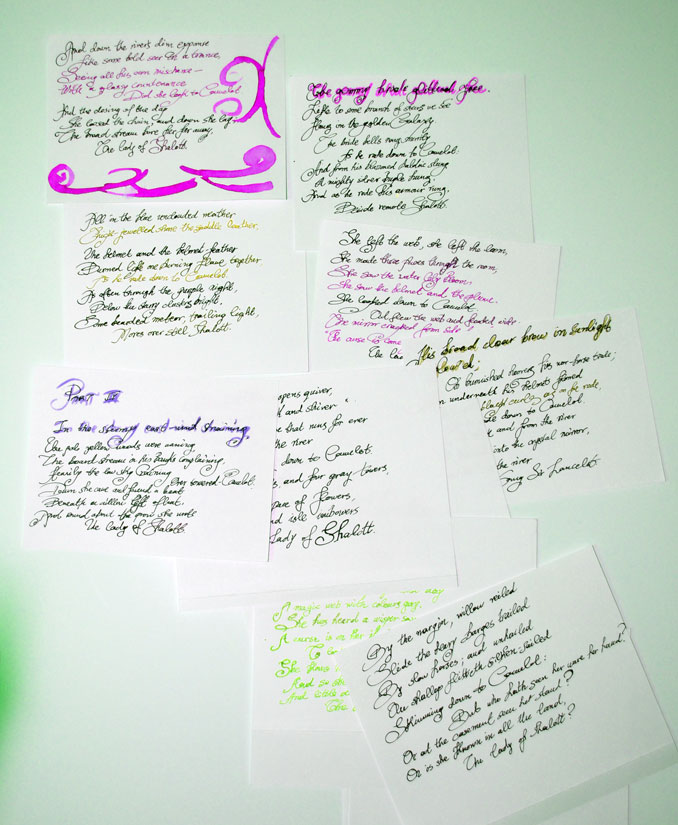 And down the river's dim expanse
Like some bold seer in a trance,
Seeing all his own mischance —
With a glassy countenance
Did she look to Camelot.
And the closing of the day
She loosed the chain, and down she lay,
The broad stream bore her far away,
The lady of Shalott.
The gemmy bridle glittered free.
Like to some branch of stars we see
Hung in the golden Galaxy.
The bridle bells rang merrily
As he rode down to Camelot.
And from his blazoned baldric slung
A mighty silver bugle hung,
And as he rode his armour rung,
Beside remote Shalott.
All in the blue unclouded weather
Thick-jewelled shone the saddle leather,
The helmet and the helmet-feather
Burned like one burning flame together
As he rode down to Camelot.
As often through the purple night,
Below the starry clusters bright,
Some bearded meteor, trailing light,
Moves over still Shalott.
She left the web, she left the loom,
She made three paces through the room,
She saw the water lily bloom,
She saw the helmet and the plume.
She looked down to Camelot.
Out flew the web and floated wide
The mirror cracked from side
"The curse is come
The La
His broad clear brow in sunlight
glowed;
On burnished hooves his war-horse trode;
underneath his helmet flowed
black curls as on he rode,
down to Camelot.
and from the river
into the crystal mirror,
the river
Sang Sir Lancelot.
Part IV
In the stormy east-wind straining,
The pale yellow woods were waning,
The broad stream in his banks complaining,
Heavily the low sky raining
Over towered Camelot.
Down she came and found a boat
Beneath a willow left afloat
And round about the prow she wrote
The Lady of Shalott.
quiver,
and shiver
that runs for ever
the river
down to Camelot.
and four gray towers,
of flowers,
isle embowers
Lady of Shalott.
A magic web with colours gay.
She has heard a wisper
A curse is on her
To
She knows
And so she
And little
The
By the margin, willow veiled
Slide the heavy barges trailed
By slow horses; and unhailed
The shallop flitteth silken-sailed
Skimming down to Camelot:
But who hath seen her wave her hand?
Or at the casement seen her stand?
Or is she known in all the land,
The lady of Shalott?